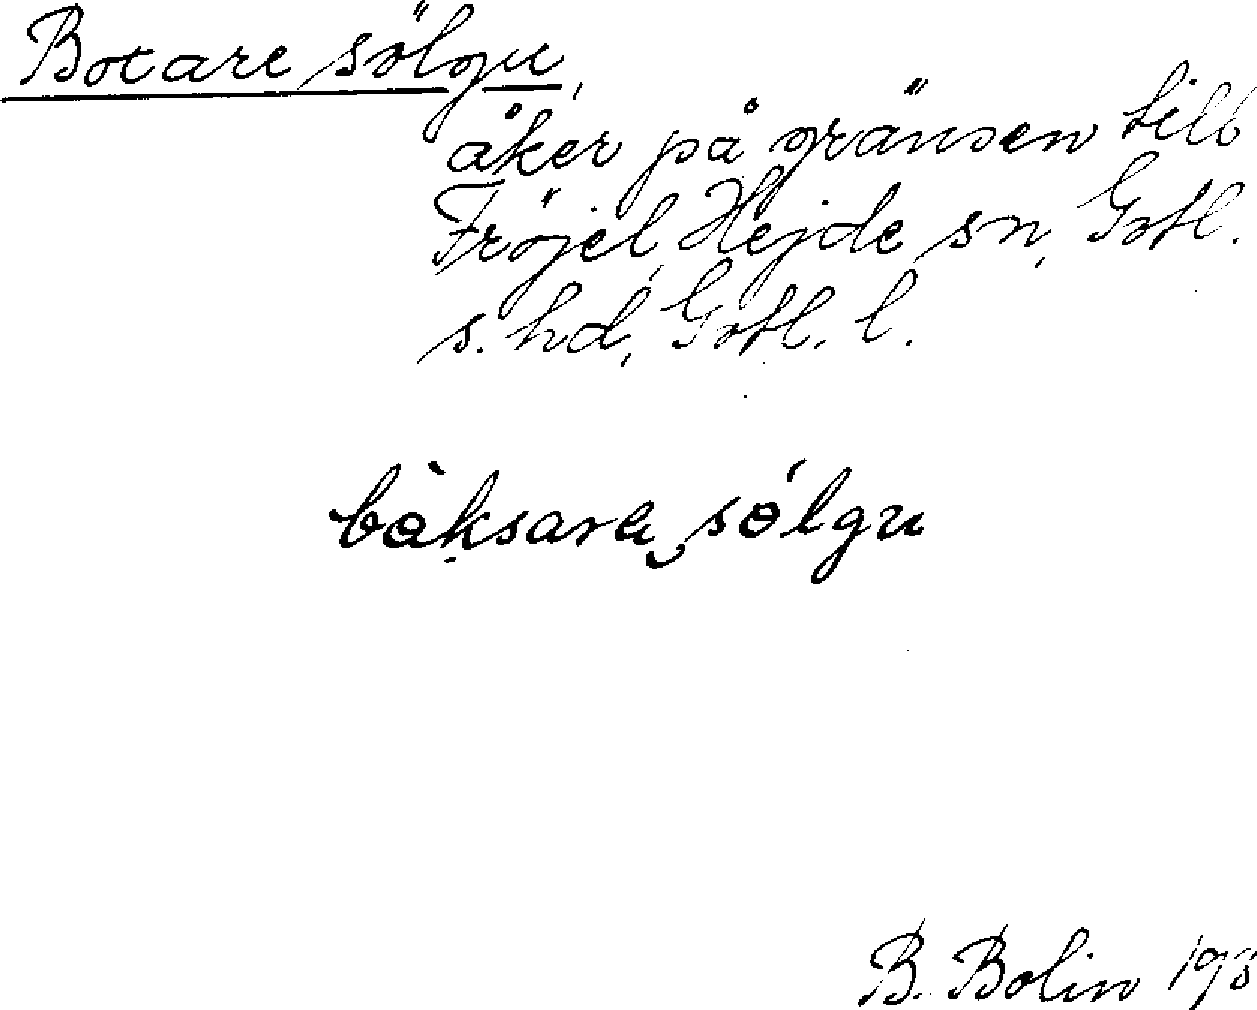 Botare sölgu,
åker på gränsen till
Fröjel, Hejde sn, Gotl.
s. hd, Gotl. l.
bàksara sólgu
B. Bolin 193